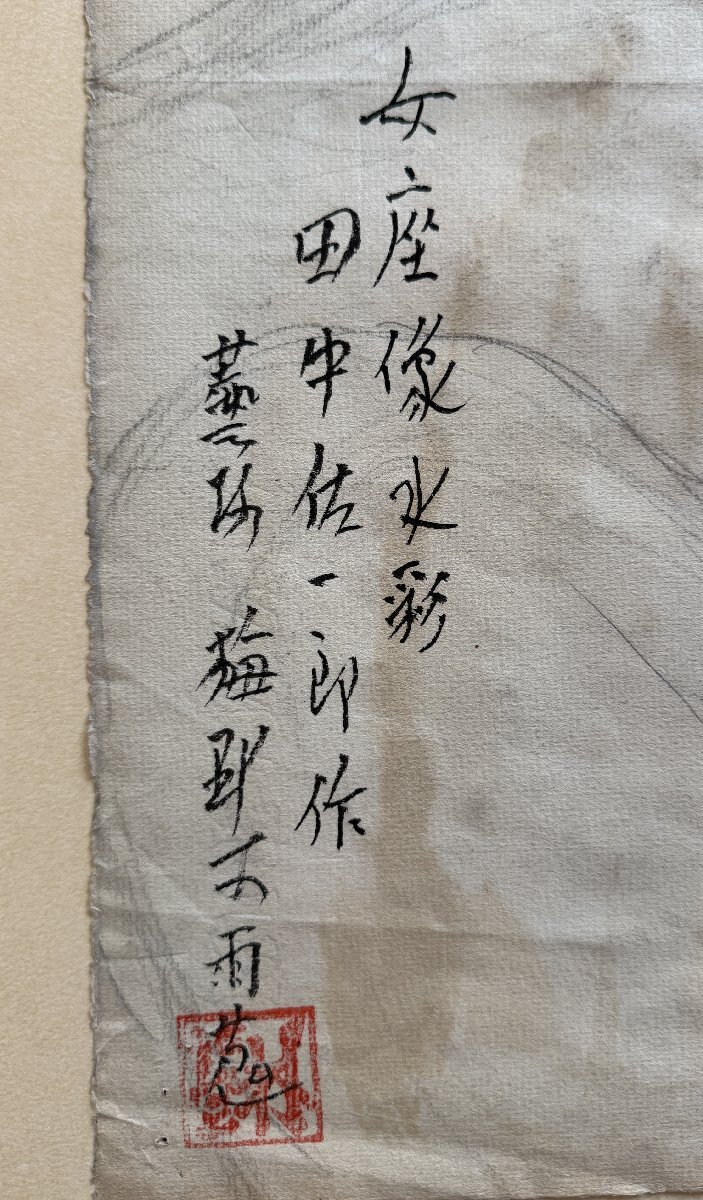 女座像水彩
田中佐一郎作
藝林 梅野木雨蒐